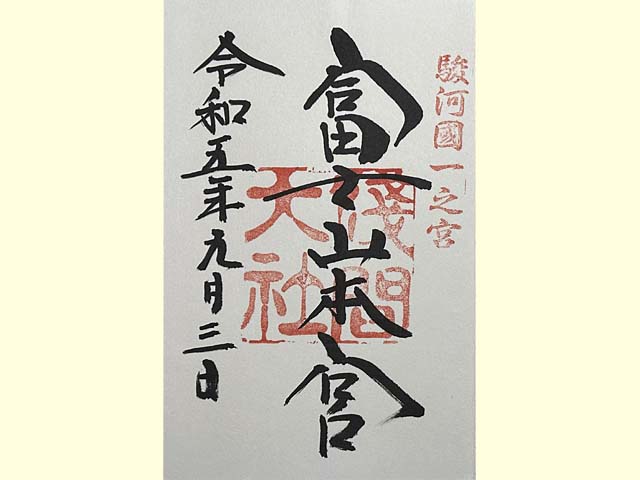 駿河國一之宮
富士山本宮
淺間大社
令和五年九月三日